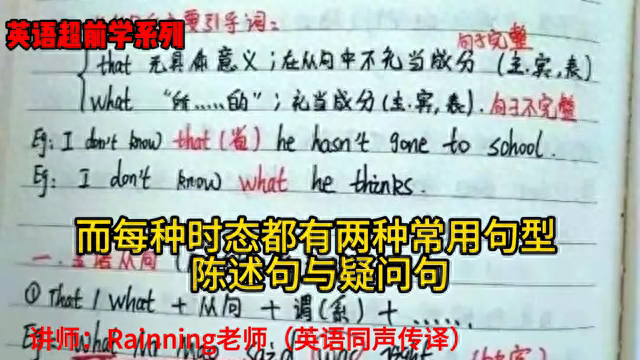 英语超前学系列
要引导词:
句子完整
that 无具体意义;在从句中不充当成分(主.宾,表)
what "所……的";充当成分(主.宾,表).句子不完整
Eg: I don't know that(省) he hasn't gone to school.
Eg: I don't know what he thinks.
而每种时态都有两种常用句型
陈述句与疑问句
一.主语从句
① That / what + 从句 + 谓(系) + ......
讲师：Rainning老师（英语同声传译）
Eg: What